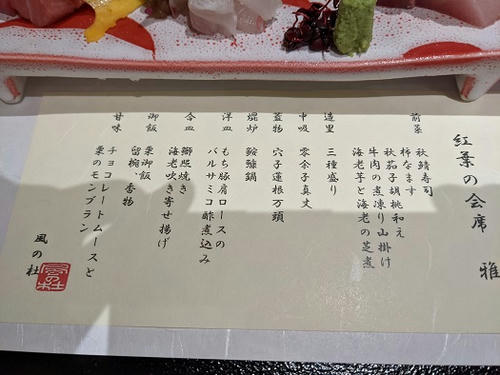 紅葉の会席 雅
前菜 秋鯖寿司
柿なます
秋茄子胡桃和え
牛肉の煮凍り山掛け
海老芋と海老の芝煮
造里 三種盛り
中吸 零余子真丈
蓋物 穴子蓮根万頭
焜炉 鮟鱇鍋
洋皿 もち豚肩ロースの
バルサミコ酢煮込み
合皿 鰤照焼き
海老吹き寄せ揚げ
御飯 栗御飯
留椀、香物
甘味 チョコレートムースと
栗のモンブラン
風の杜
風の杜